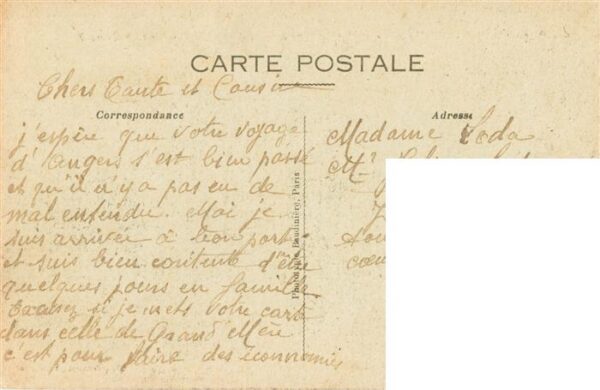 CARTE POSTALE
Chers Tante et Cousin
Correspondance
Adresse
j'espère que votre voyage
d'Angers s'est bien passé
et qu'il n'y a pas eu de
mal entendu. Moi je
suis arrivée à bon port
et suis bien contente d'être
quelques jours en famille
Excusez si je mets votre carte
dans celle de Grand'Mère
c'est pour faire des économies
Photographie Baudinière, Paris
Madame